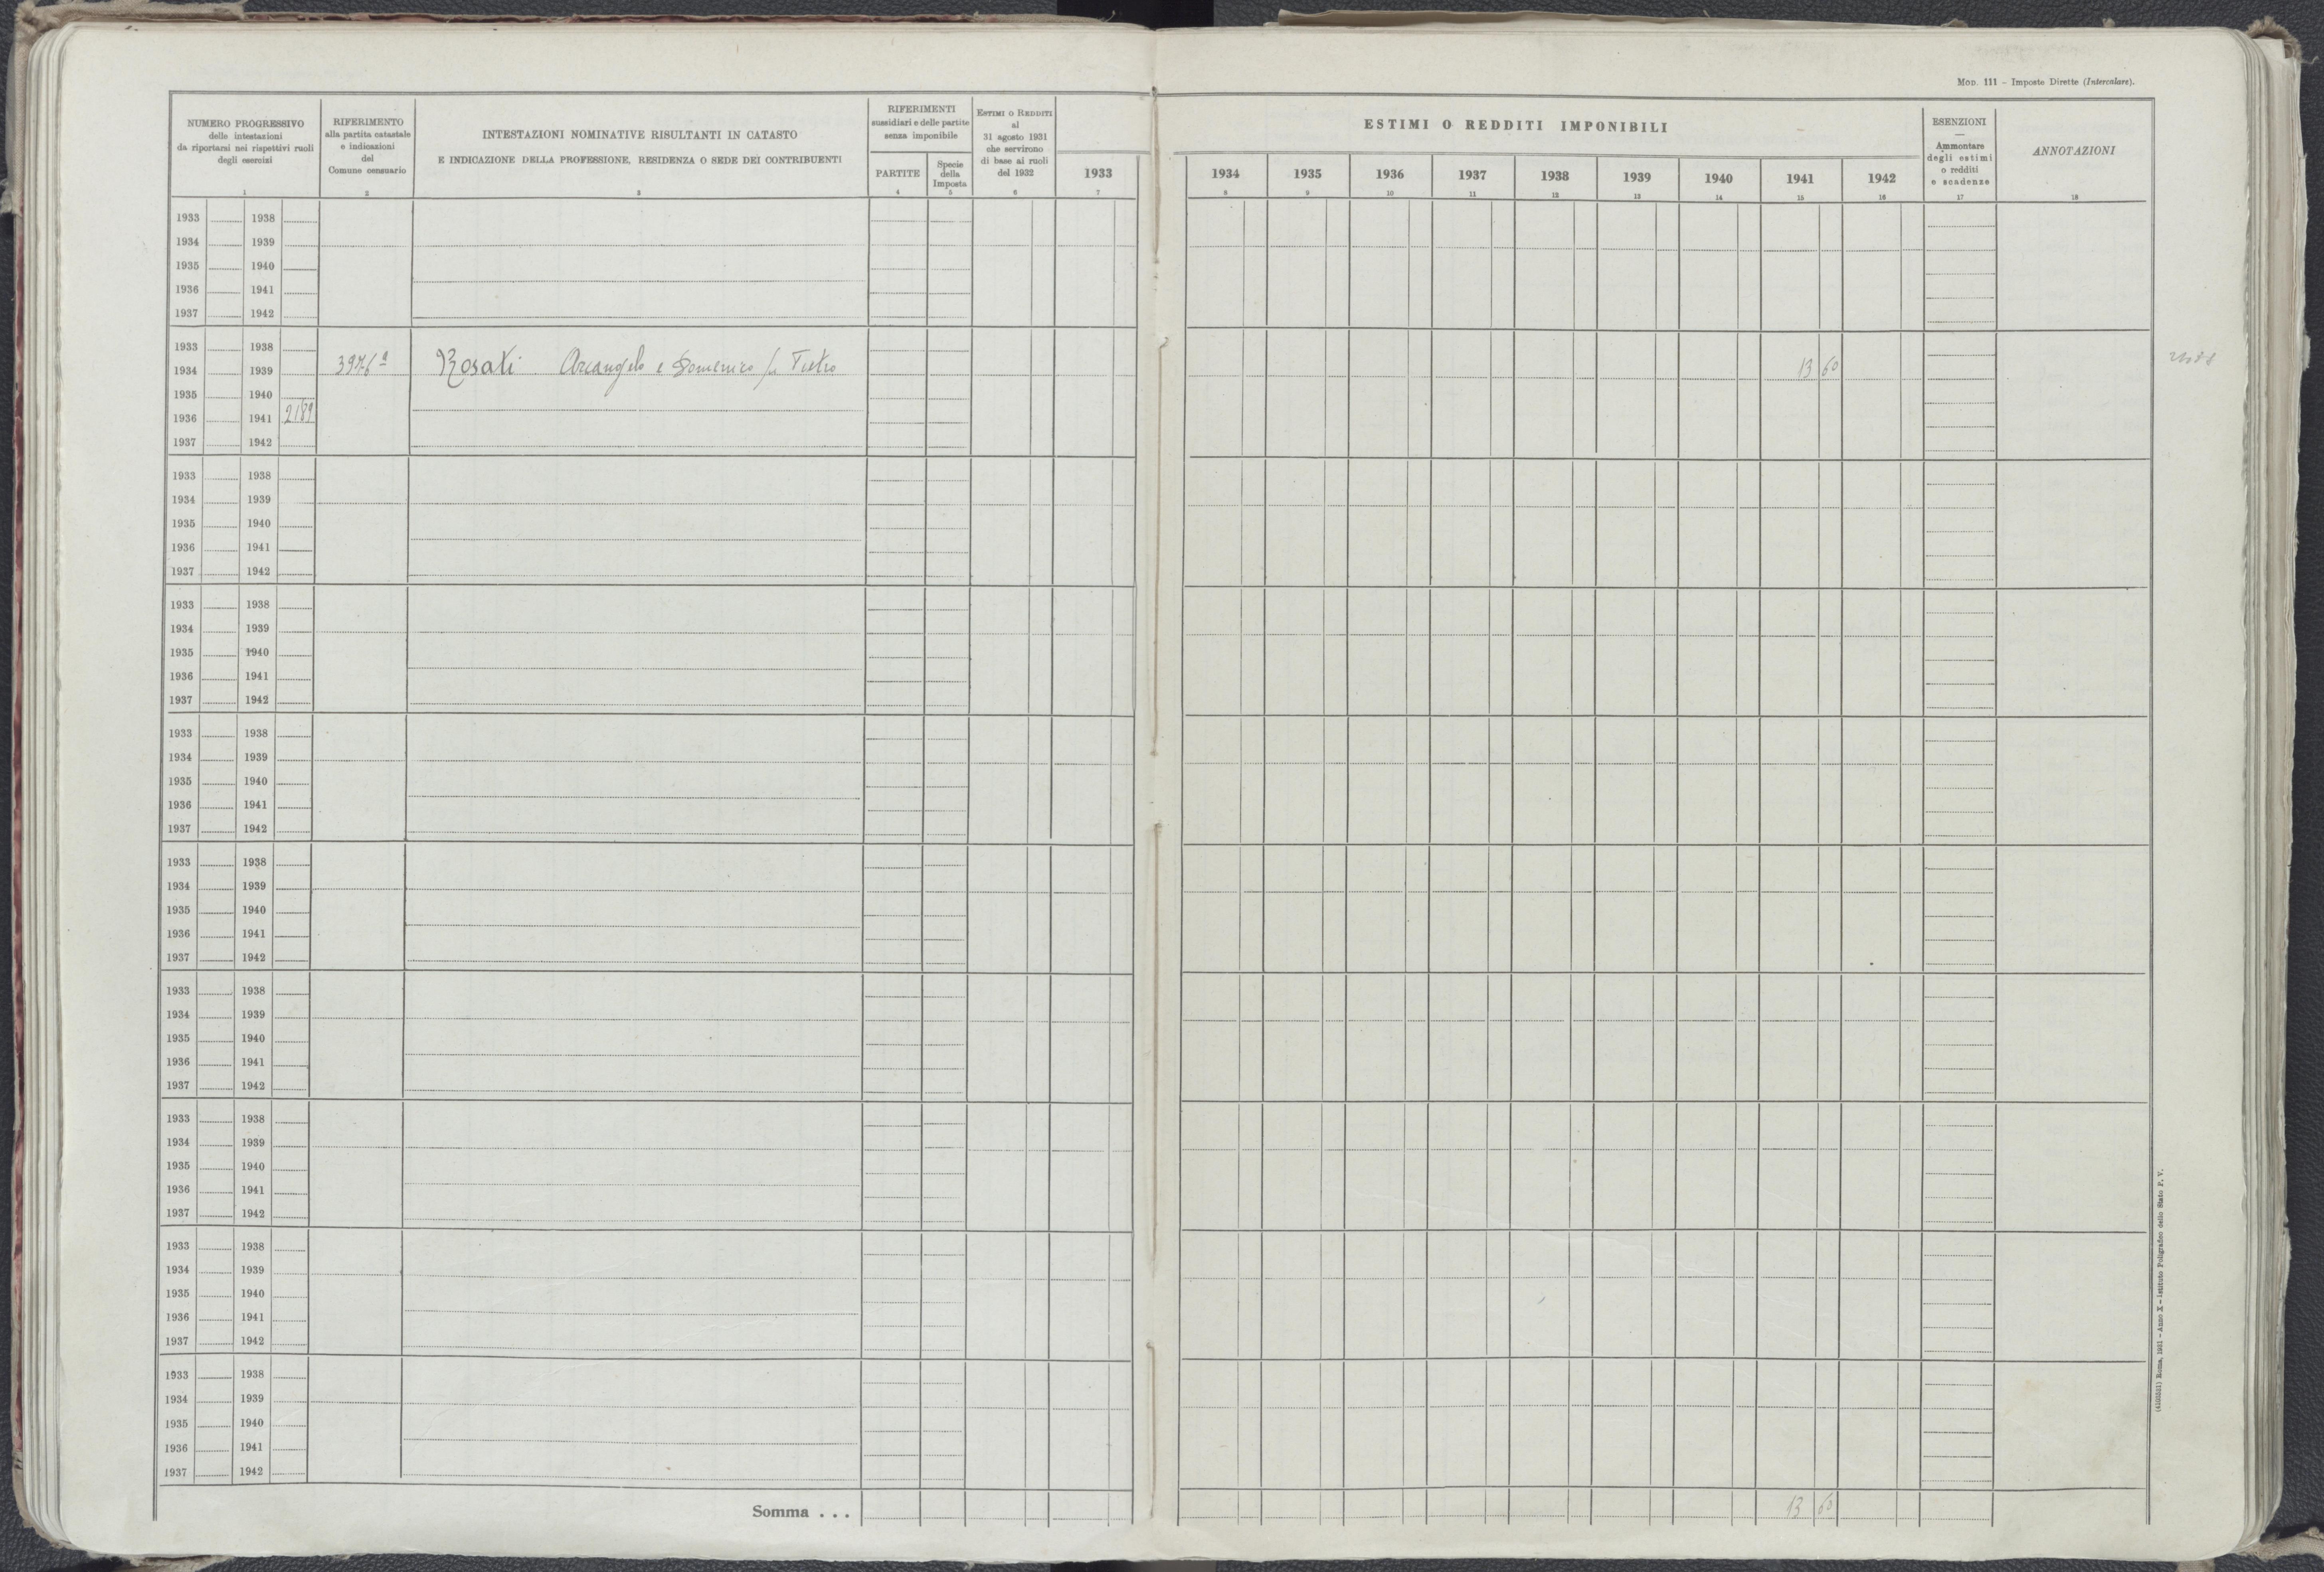 Mod. 111 - Imposte Dirette (Intercalare).
NUMERO PROGRESSIVO
delle intestazioni
da riportarsi nei rispettivi ruoli
degli esercizi
1
RIFERIMENTO
alla partita catastale
e indicazioni
del
Comune censuario
2
INTESTAZIONI NOMINATIVE RISULTANTI IN CATASTO
E INDICAZIONE DELLA PROFESSIONE, RESIDENZA O SEDE DEI CONTRIBUENTI
3
RIFERIMENTI
sussidiari e delle partite
senza imponibile
PARTITE
4
Specie
della
Imposta
5
ESTIMI O REDDITI
al
31 agosto 1931
che servirono
di base ai ruoli
del 1932
6
1933
7
ESTIMI O REDDITI IMPONIBILI
1934 1935 1936 1937 1938 1939 1940 1941 1942
8 9 10 11 12 13 14 15 16
ESENZIONI
—
Ammontare
degli estimi
o redditi
e scadenze
17
ANNOTAZIONI
18
1933 1938
1934 1939
1935 1940
1936 1941
1937 1942
1933 1938
1934 1939 Rosati Arcangelo e Domenico fu Pietro 13 60
1935 1940
1936 1941 2189
1937 1942
1933 1938
1934 1939
1935 1940
1936 1941
1937 1942
1933 1938
1934 1939
1935 1940
1936 1941
1937 1942
1933 1938
1934 1939
1935 1940
1936 1941
1937 1942
1933 1938
1934 1939
1935 1940
1936 1941
1937 1942
1933 1938
1934 1939
1935 1940
1936 1941
1937 1942
1933 1938
1934 1939
1935 1940
1936 1941
1937 1942
1933 1938
1934 1939
1935 1940
1936 1941
1937 1942
1933 1938
1934 1939
1935 1940
1936 1941
1937 1942
Somma . . . 13 60
Roma, 1931 - Anno X - Istituto Poligrafico dello Stato P. V.